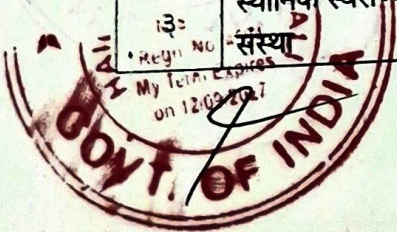 स्थानिक स्वरा
3
संस्था
Regn No
My Term Expires
on 12/09/2027
GOVT. OF INDIA